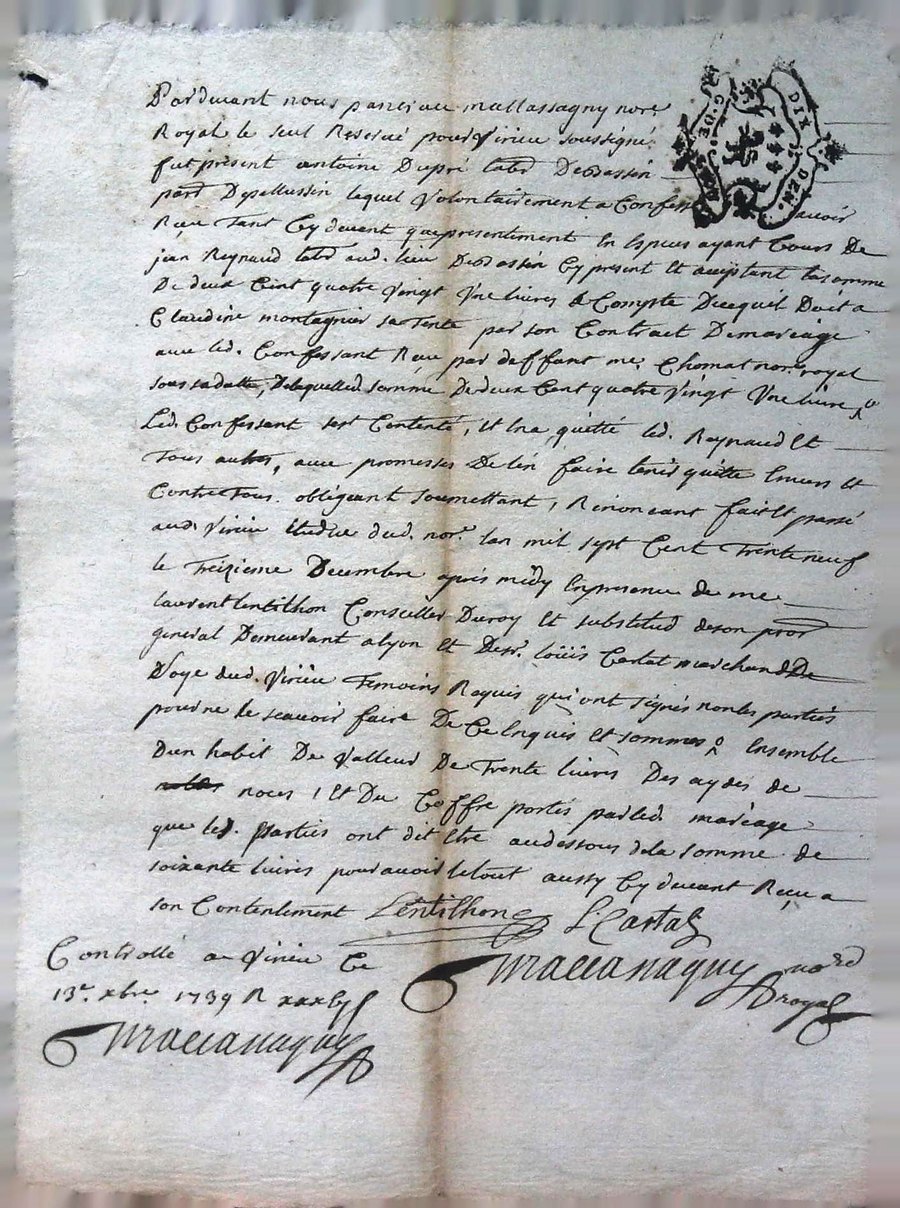 Pardevant nous pancrace mallassagny nore
Royal le seul Reservé pour Virieu soussigné
fut présent antoine Dupré labr Debassin
parr Depellussin lequel Volontairement a Confessé avoir
Reçu tant Cy devant que présentiment En Espuces ayant Cours De
jean Reynaud labr aud. lieu Debassin Cy present Et acceptant la somme
De deux Cent quatre vingt Une livres a Compte Ducequil Doit a
Claudine montagnier sa tente par son Contract Demariage
avec led. Confessant Reçu par deffant me. Chomat nore royal
sous sa datte, De laquelled somme De deux Cent quatre Vingt Une livre
Led. Confessant sest Contenté, Et Ena quitté led. Reynaud Et
Tous autres, avec promesses De len faire tenir quitte Envers Et
Contre tous. obligeant soumettant, Renonceant fait Et passé
aud. Virieu Etude dud. nore. lan mil sept Cent Trente neuf
le Treizieme Decembre apres midy En presence de me
laurent lentilhon Conseiller Du roy Et substitud de son pror
general Demeurant a lyon Et De sr. loüis Castat marchand De
Voye dud. Virieu Temoins Requis qui ont signés non les parties
pour ne le scavoir faire De Ce Enquis Et sommes Ensemble
Dun habit De Valleur De Trente livres Des aydes de
noces, Et Du Coffre portés par led. mariage
que led. Parties ont dit Etre au dessous de la somme de
soixante livres pour avoir le tout aussy Cy devant Reçu a
son Contentement Lentilhon L. Castat
Controllé a Virieu Ce
nore
13e. xbre. 1739 R
royal
DIX DEN.